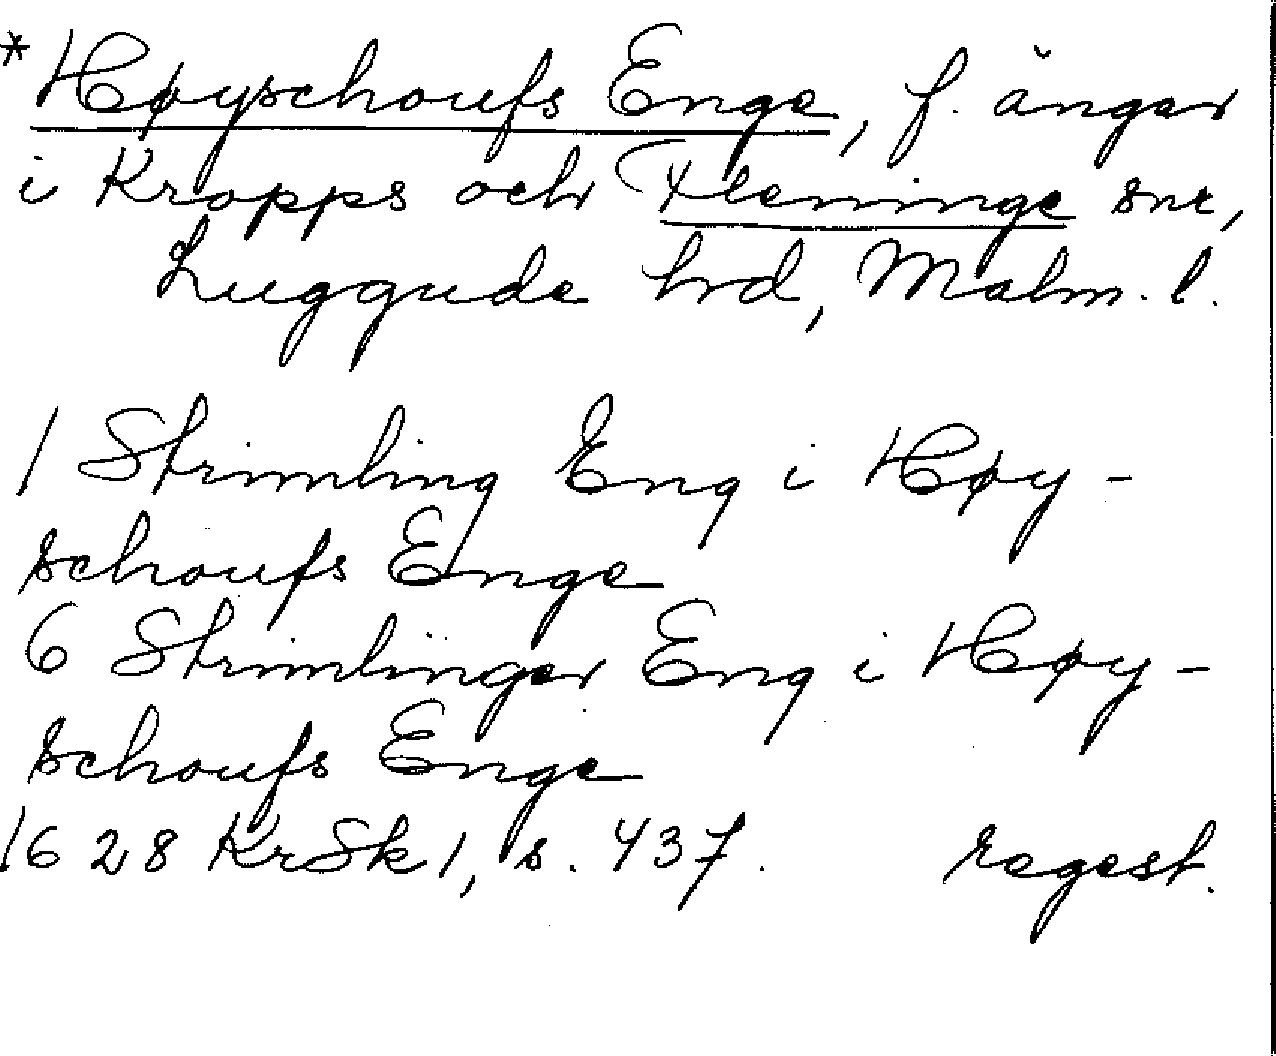 *Høyschoufs Enge, f. änger
i Kropps och Fleninge snr,
Luggude hrd, Malm. l.
1 Strimling Eng i Høy-
schoufs Enge
6 Strimlinger Eng i Høy-
schoufs Enge
1628 KrSk 1, s. 437. regest.